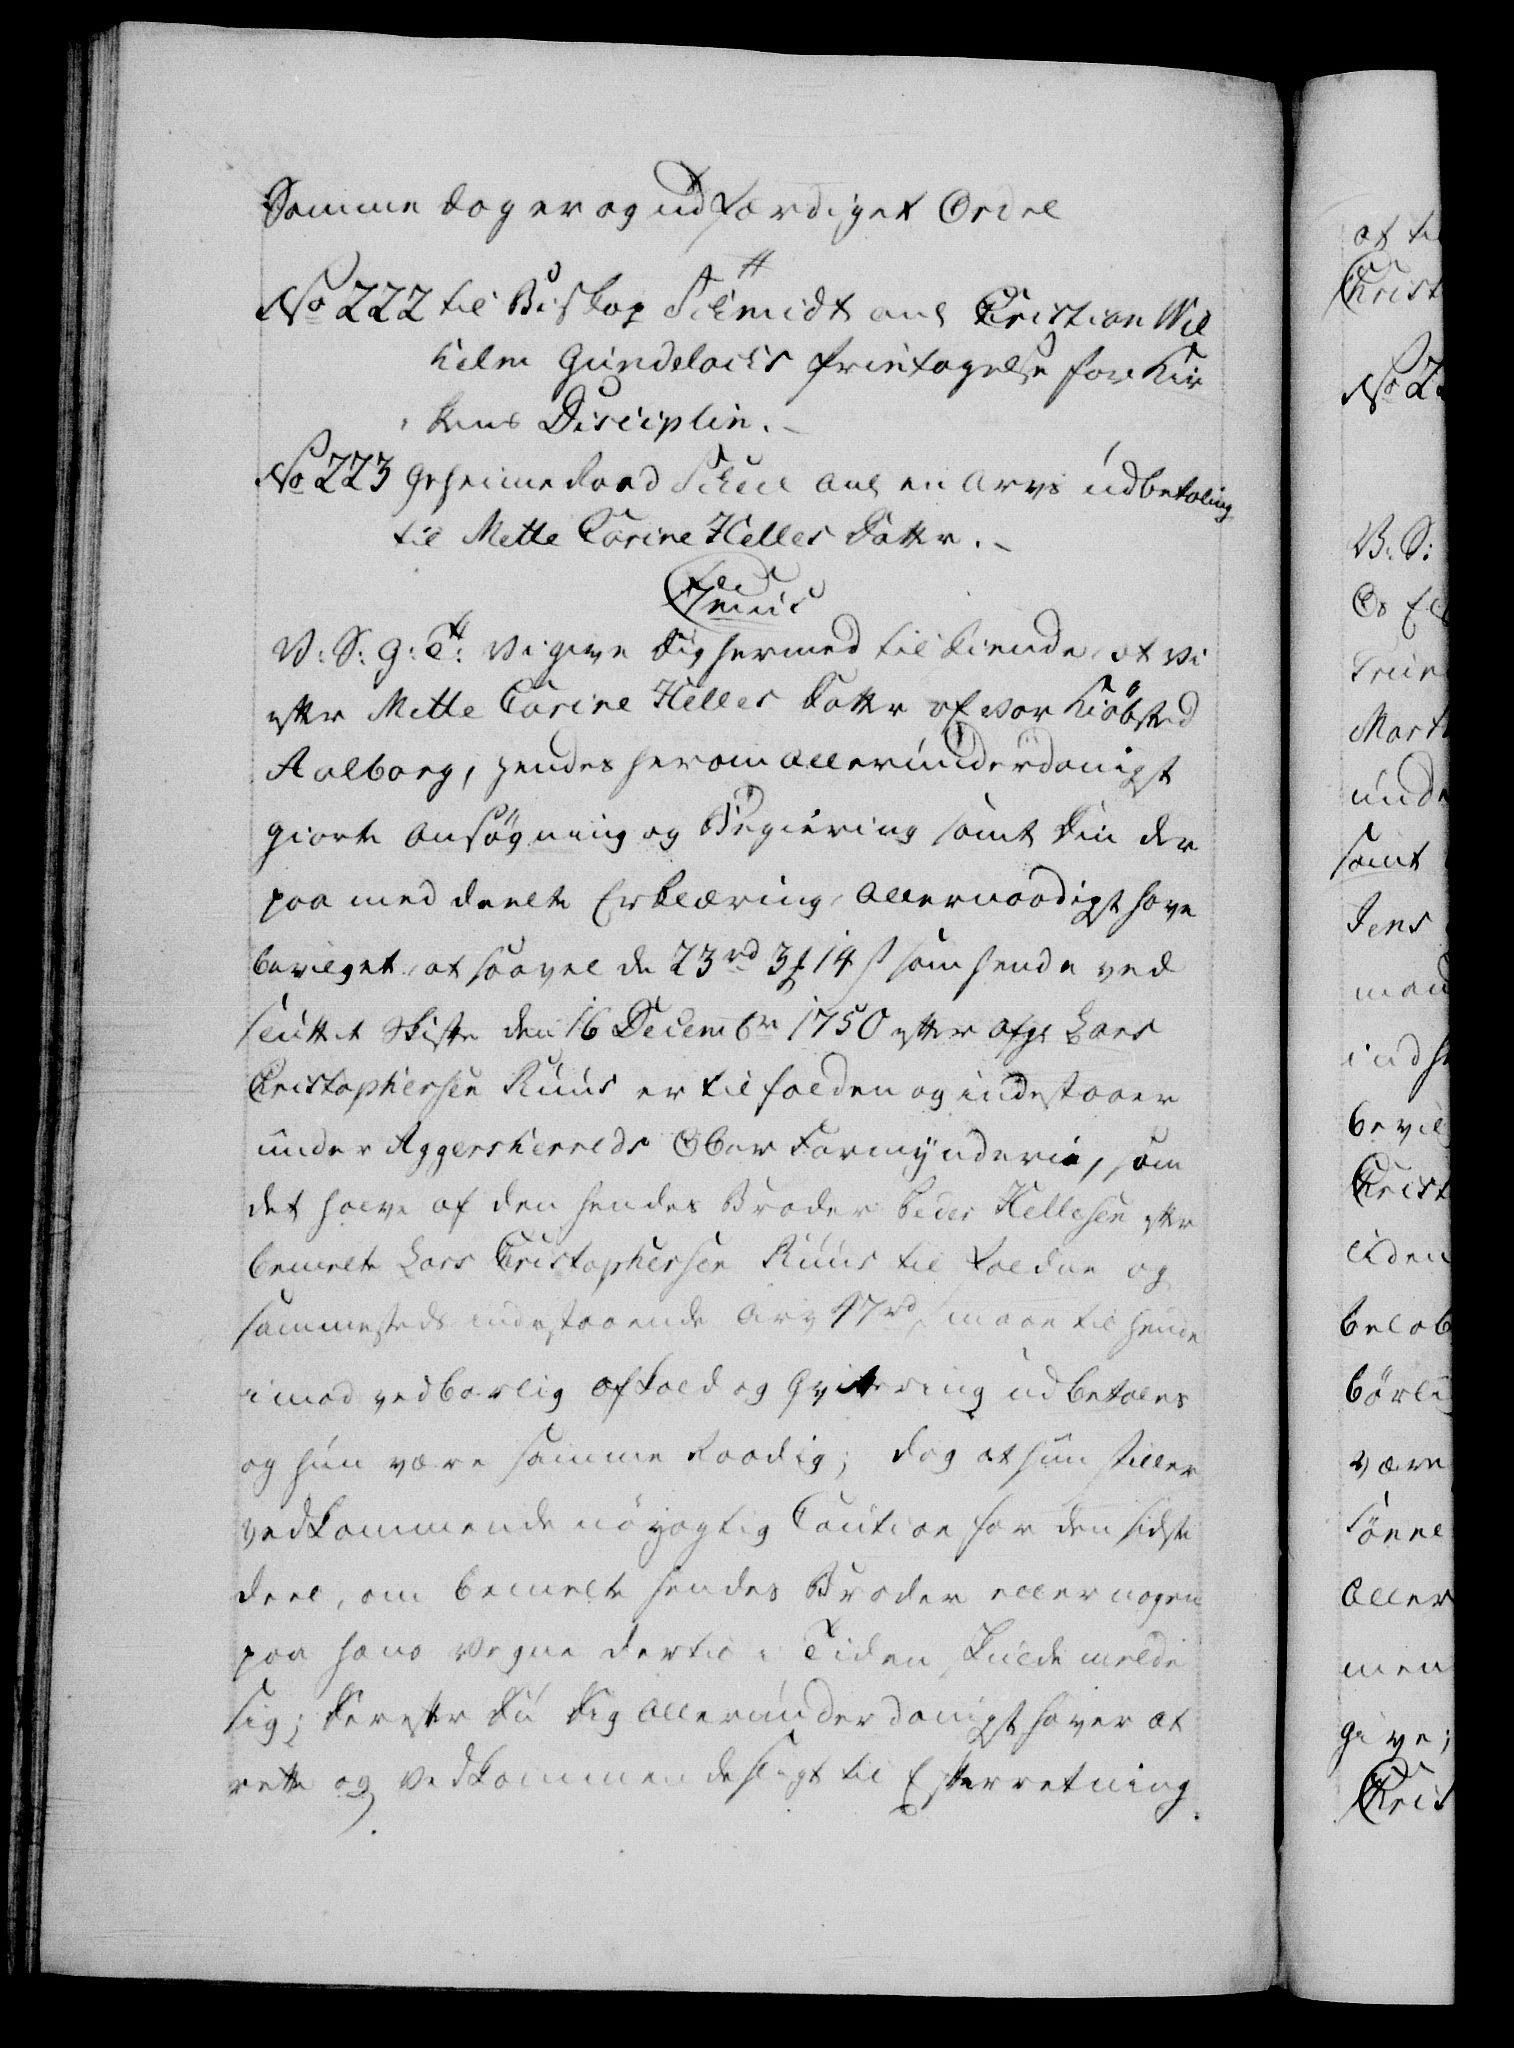 Samme dag er og udfærdiget Ordre
No 222 til Biskop Schmidt ang Christian Wil
helm Gundelachs fritagelse for Kir
kens Disciplin.
No 223 Geheime Raad Scheel ang en arvs udbetaling
til Mette Carine Helles datter.
V: S: G: T: Vi give dig hermed til kiende, at vi
efter Mette Carine Helles datter af vor Kiöbsted
Aalborg, hendes herom allerunderdanigst
giorte ansøgning og Begiering samt din der
paa meddeelte Erklæring, allernaadigst have
bevilget, at saavel de 23 rd 3 ƒ 14 s som hende ved
sluttet Skifte den 16 Decembr 1750 efter afg. Lars
Christophersen Ruus er tilfalden og indestaaer
under Aggersherreds Ober Formynderie, som
det halve af den hendes Broder Peder Hellesen efter
bemelte Lars Christophersen Ruus tilfaldne og
sammesteds indestaaende arv 47 rd, maae til hende
imod vedbørlig afkald og Qvitering udbetales
og hun være samme raadig; dog at hun stiller
vedkommende nöyagtig Caution for den sidste
deel, om bemelte hendes Broder eller nogen
paa hans vegne dertil i Tiden skulde melde
sig; derefter du dig allerunderdanigst haver at
rette og vedkommende sligt til Efterretning
at til
Christ
No 22
V: S:
Os El
Trun
Mart
unde
samt
Jens
man
indst
bevil
Christ
liden
beløb
börli
være
sönne
aller
men
give;
Chris